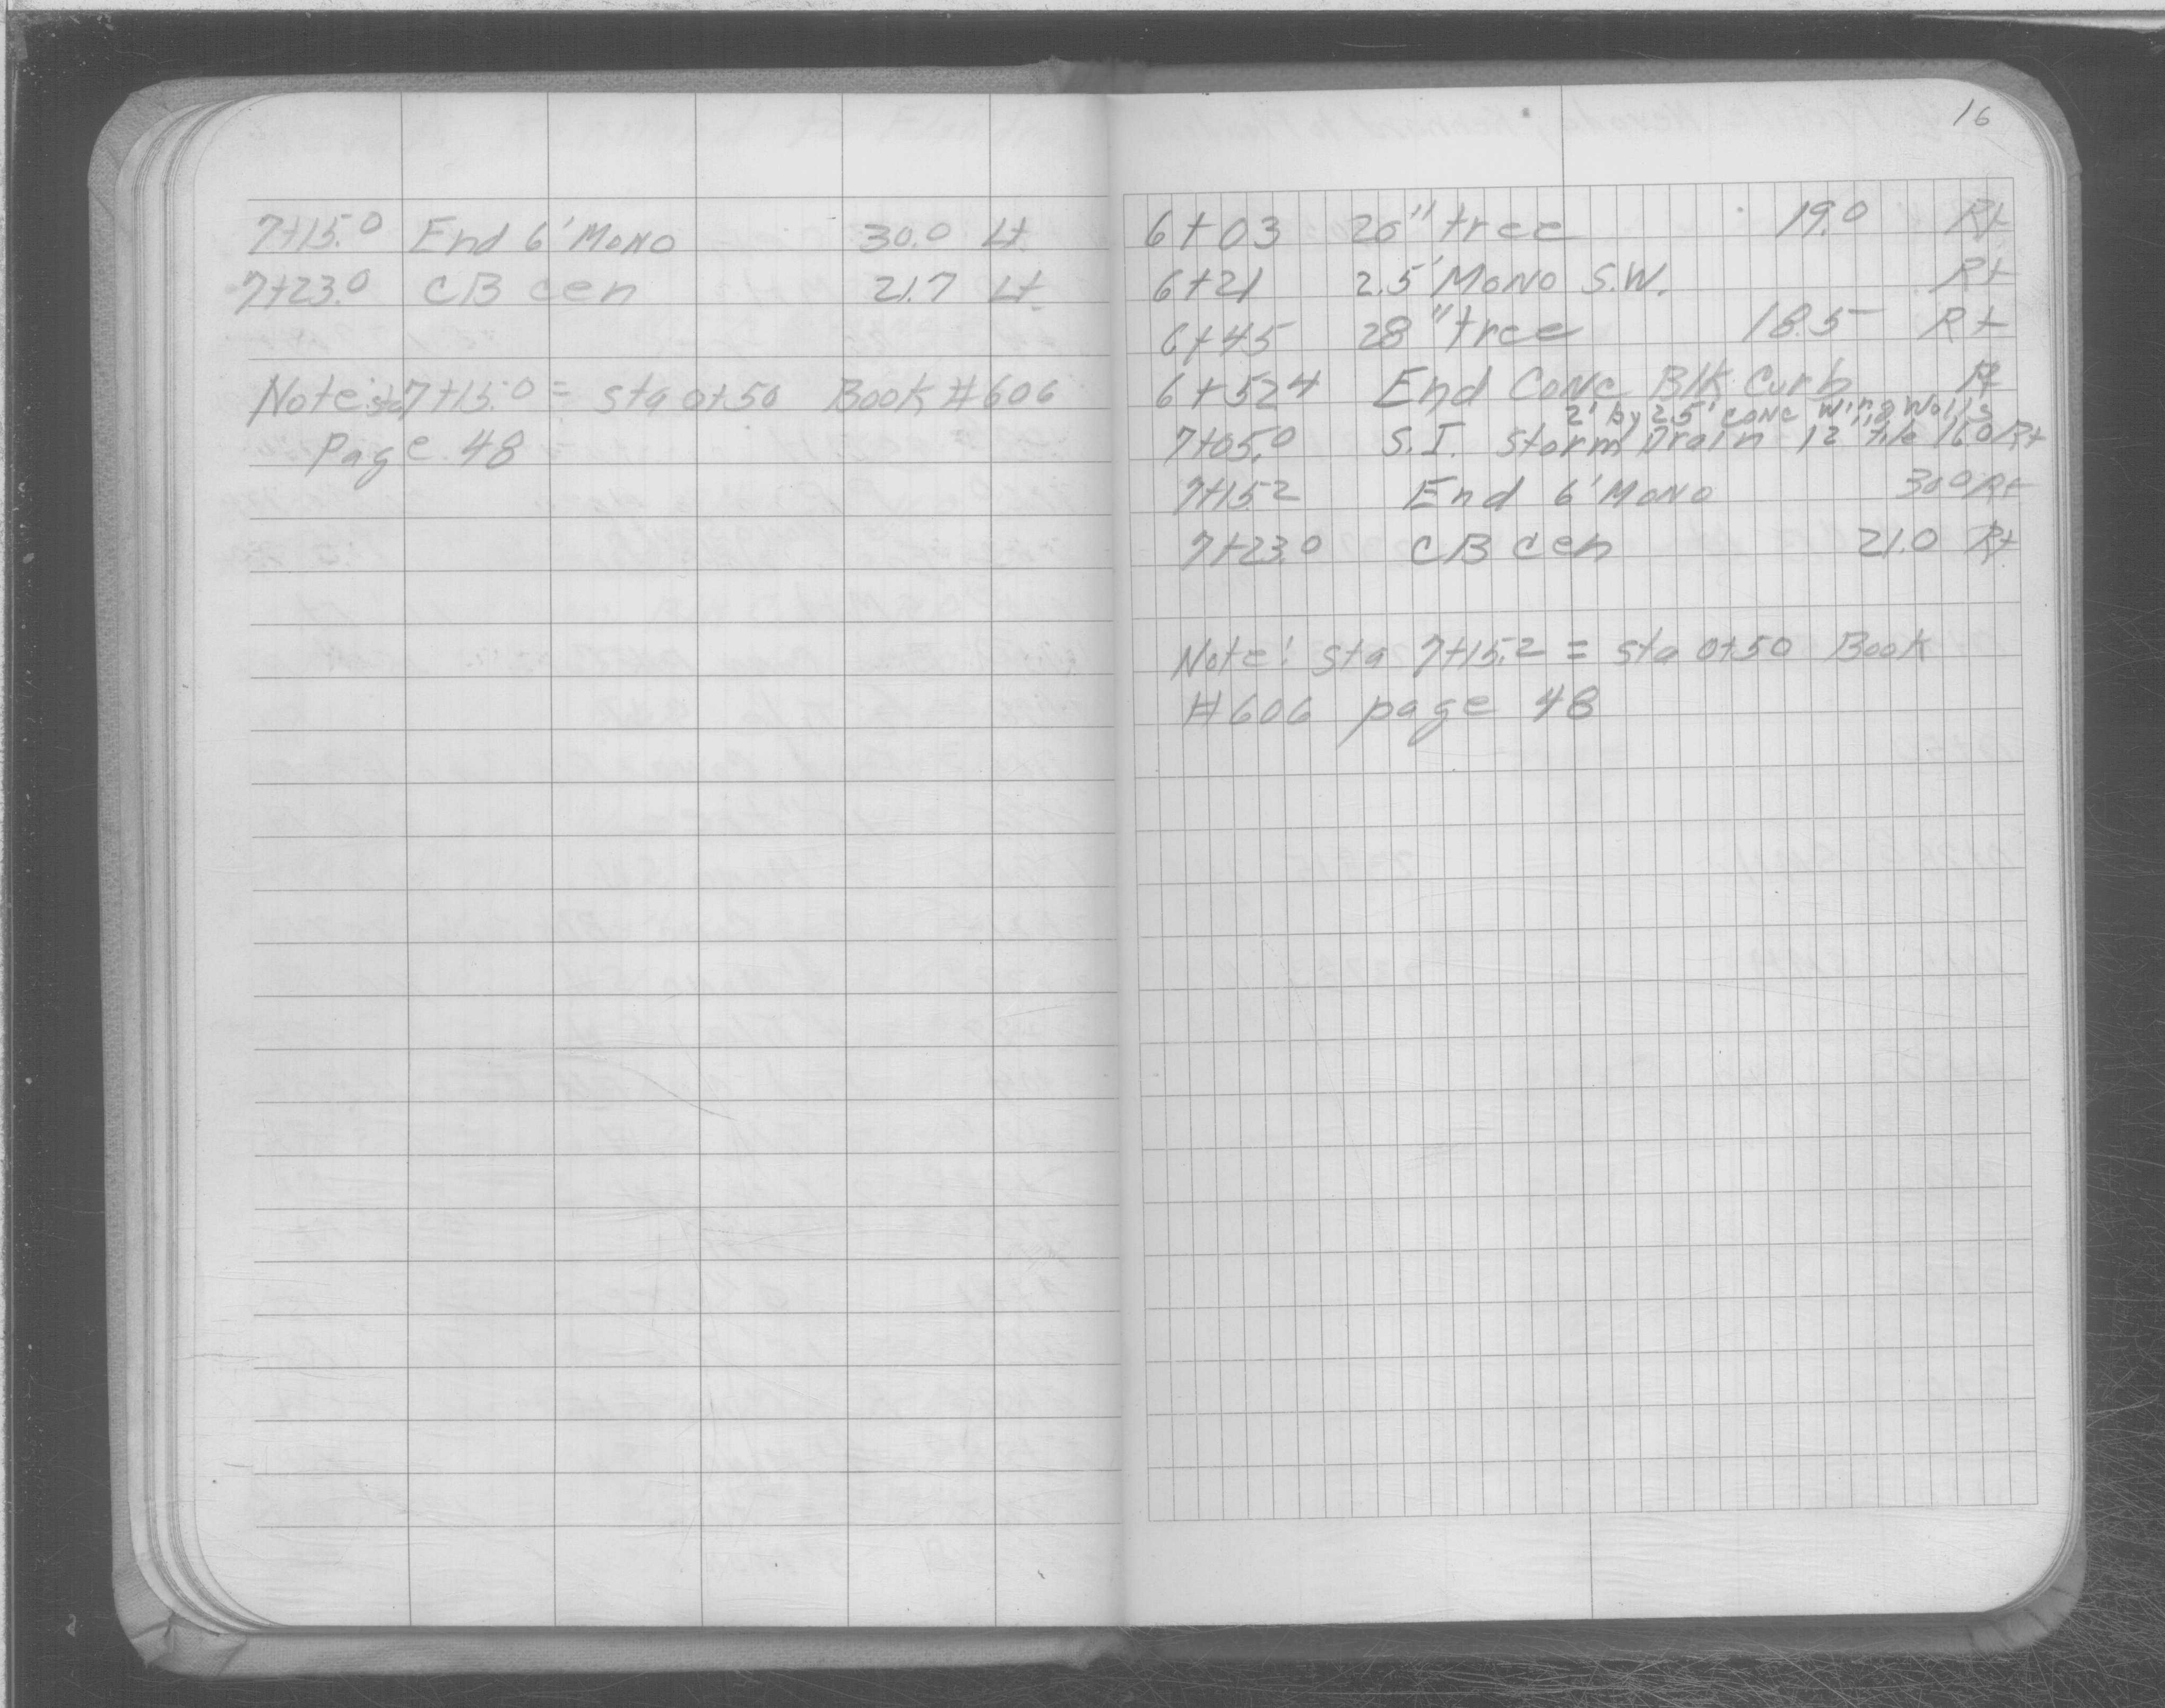 7+15.0 End 6' Mono 30.0 Lt
7+23.0 CB cen 21.7 Lt.
Note: sta 7+15.0 = sta 0+50 Book #606
Page 48
16
6+03 20" tree 19.0 Rt
6+21 2.5' Mono S.W. Rt
6+45 28" tree 18.5 Rt
6+52.4 End Conc Blk Curb Rt
2' by 2.5' conc wing walls
7+05.0 S.I. Storm Drain 12" tile 16.0 Rt
7+15.2 End 6' Mono 30.0 Rt
7+23.0 CB cen 21.0 Rt
Note! sta 7+15.2 = sta 0+50 Book
#606 page 48